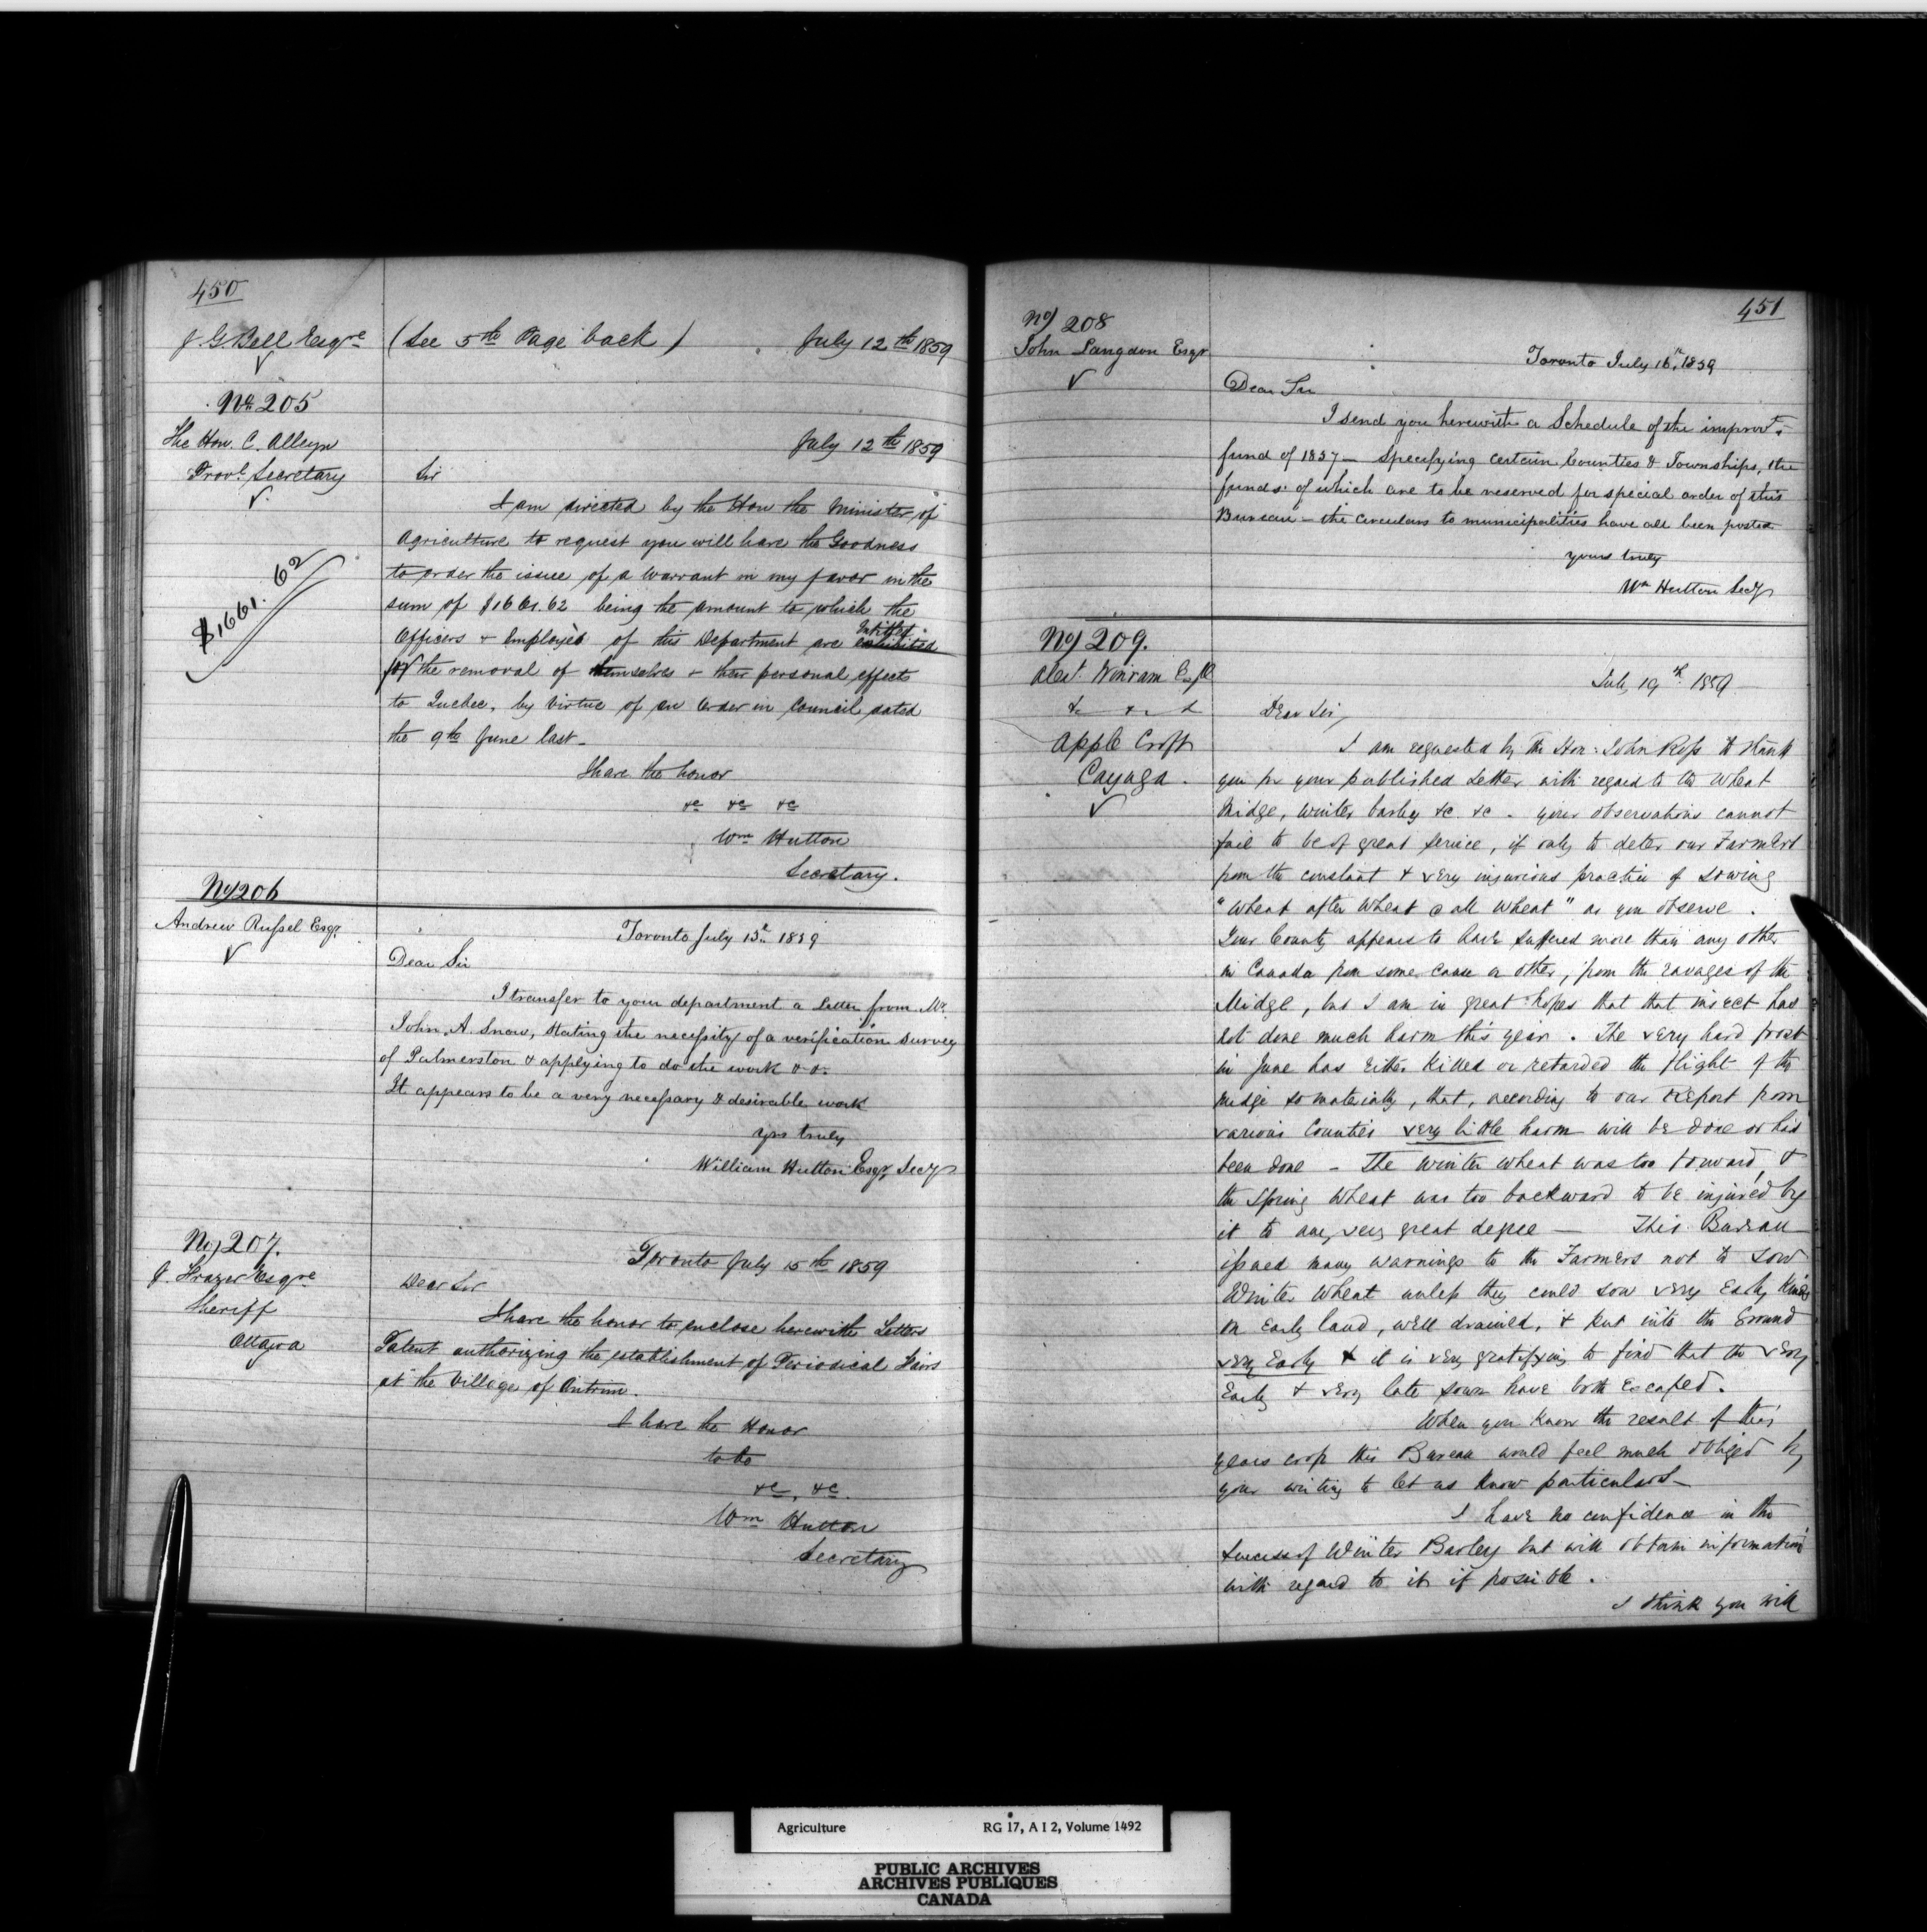 450
J. G. Bell Esqre (See 5th Page back) July 12th 1859
No. 205
The Hon. C. Alleyn
Provl. Secretary
July 12th 1859
Sir
I am directed by the Hon the Minister of
Agriculture to request you will have the Goodness
to order the issue of a Warrant in my favor in the
$1661.62
sum of $1661.62 being the amount to which the
Officers & Employès of this Department are exhibited Intitled
for the removal of themselves & their personal effects
to Quebec, by virtue of an Order in Council dated
the 9th June last.
I have the honor
&c &c &c
Wm Hutton
Secretary.
No 206
Andrew Russel Esqr.
Toronto July 15th 1859
Dear Sir
I transfer to your department a Letter from Mr.
John A. Snow, stating the necessity of a verification survey
of Palmerston & applying to do the work &c.
It appears to be a very necessary & desirable work
yrs truly
William Hutton Esqr, Secy
No, 207.
J. Frazer Esqre
Sheriff
Ottawa
Toronto July 15th 1859
Dear Sir
I have the honor to enclose herewith Letters
Patent authorizing the establishment of Periodical Fairs
at the Village of Antrim.
I have the Honor
to be
&c, &c.
Wm Hutton
Secretary
451
No 208
John Langdon Esqr
Toronto July 16th, 1859
Dear Sir
I send you herewith a Schedule of the improvt.
fund of 1857 — specifying certain Counties & Townships, the
funds of which are to be reserved for special order of this
Bureau — the circulars to municipalities have all been posted
yours truly
Wm Hutton Secy
No 209.
Alexr. Winram Esqr
&c &c &
Apple Croft
Cayuga.
July 19th 1859
Dear Sir,
I am requested by the Hon: John Ross to thank
you for your published Letter with regard to the Wheat
Midge, Winter barley &c. &c. your observations cannot
fail to be of great service, if only to deter our Farmers
from the constant & very injurious practice of sowing
"Wheat after Wheat & all Wheat" as you observe.
Your County appears to have suffered more than any other
in Canada from some cause or other, from the ravages of the
Midge, but I am in great hopes that that insect has
not done much harm this year. The very hard frost
in June has either killed or retarded the flight of the
midge so materially, that, according to our Report from
various Counties very little harm will be done or has
been done — The Winter Wheat was too forward, &
the Spring Wheat was too backward to be injured by
it to any very great degree — This Bureau
issued many warnings to the Farmers not to sow
Winter Wheat unless they could sow very Early Kinds
on Early land, well drained, & put into the Ground
very Early & it is very gratifying to find that the very
Early & very late sown have both Escaped.
When you know the result of this
years crop this Bureau would feel much obliged by
your writing to let us know particulars —
I have no confidence in the
success of Winter Barley but will obtain information
with regard to it if possible.
I think you will
Agriculture RG 17, A I 2, Volume 1492
PUBLIC ARCHIVES
ARCHIVES PUBLIQUES
CANADA